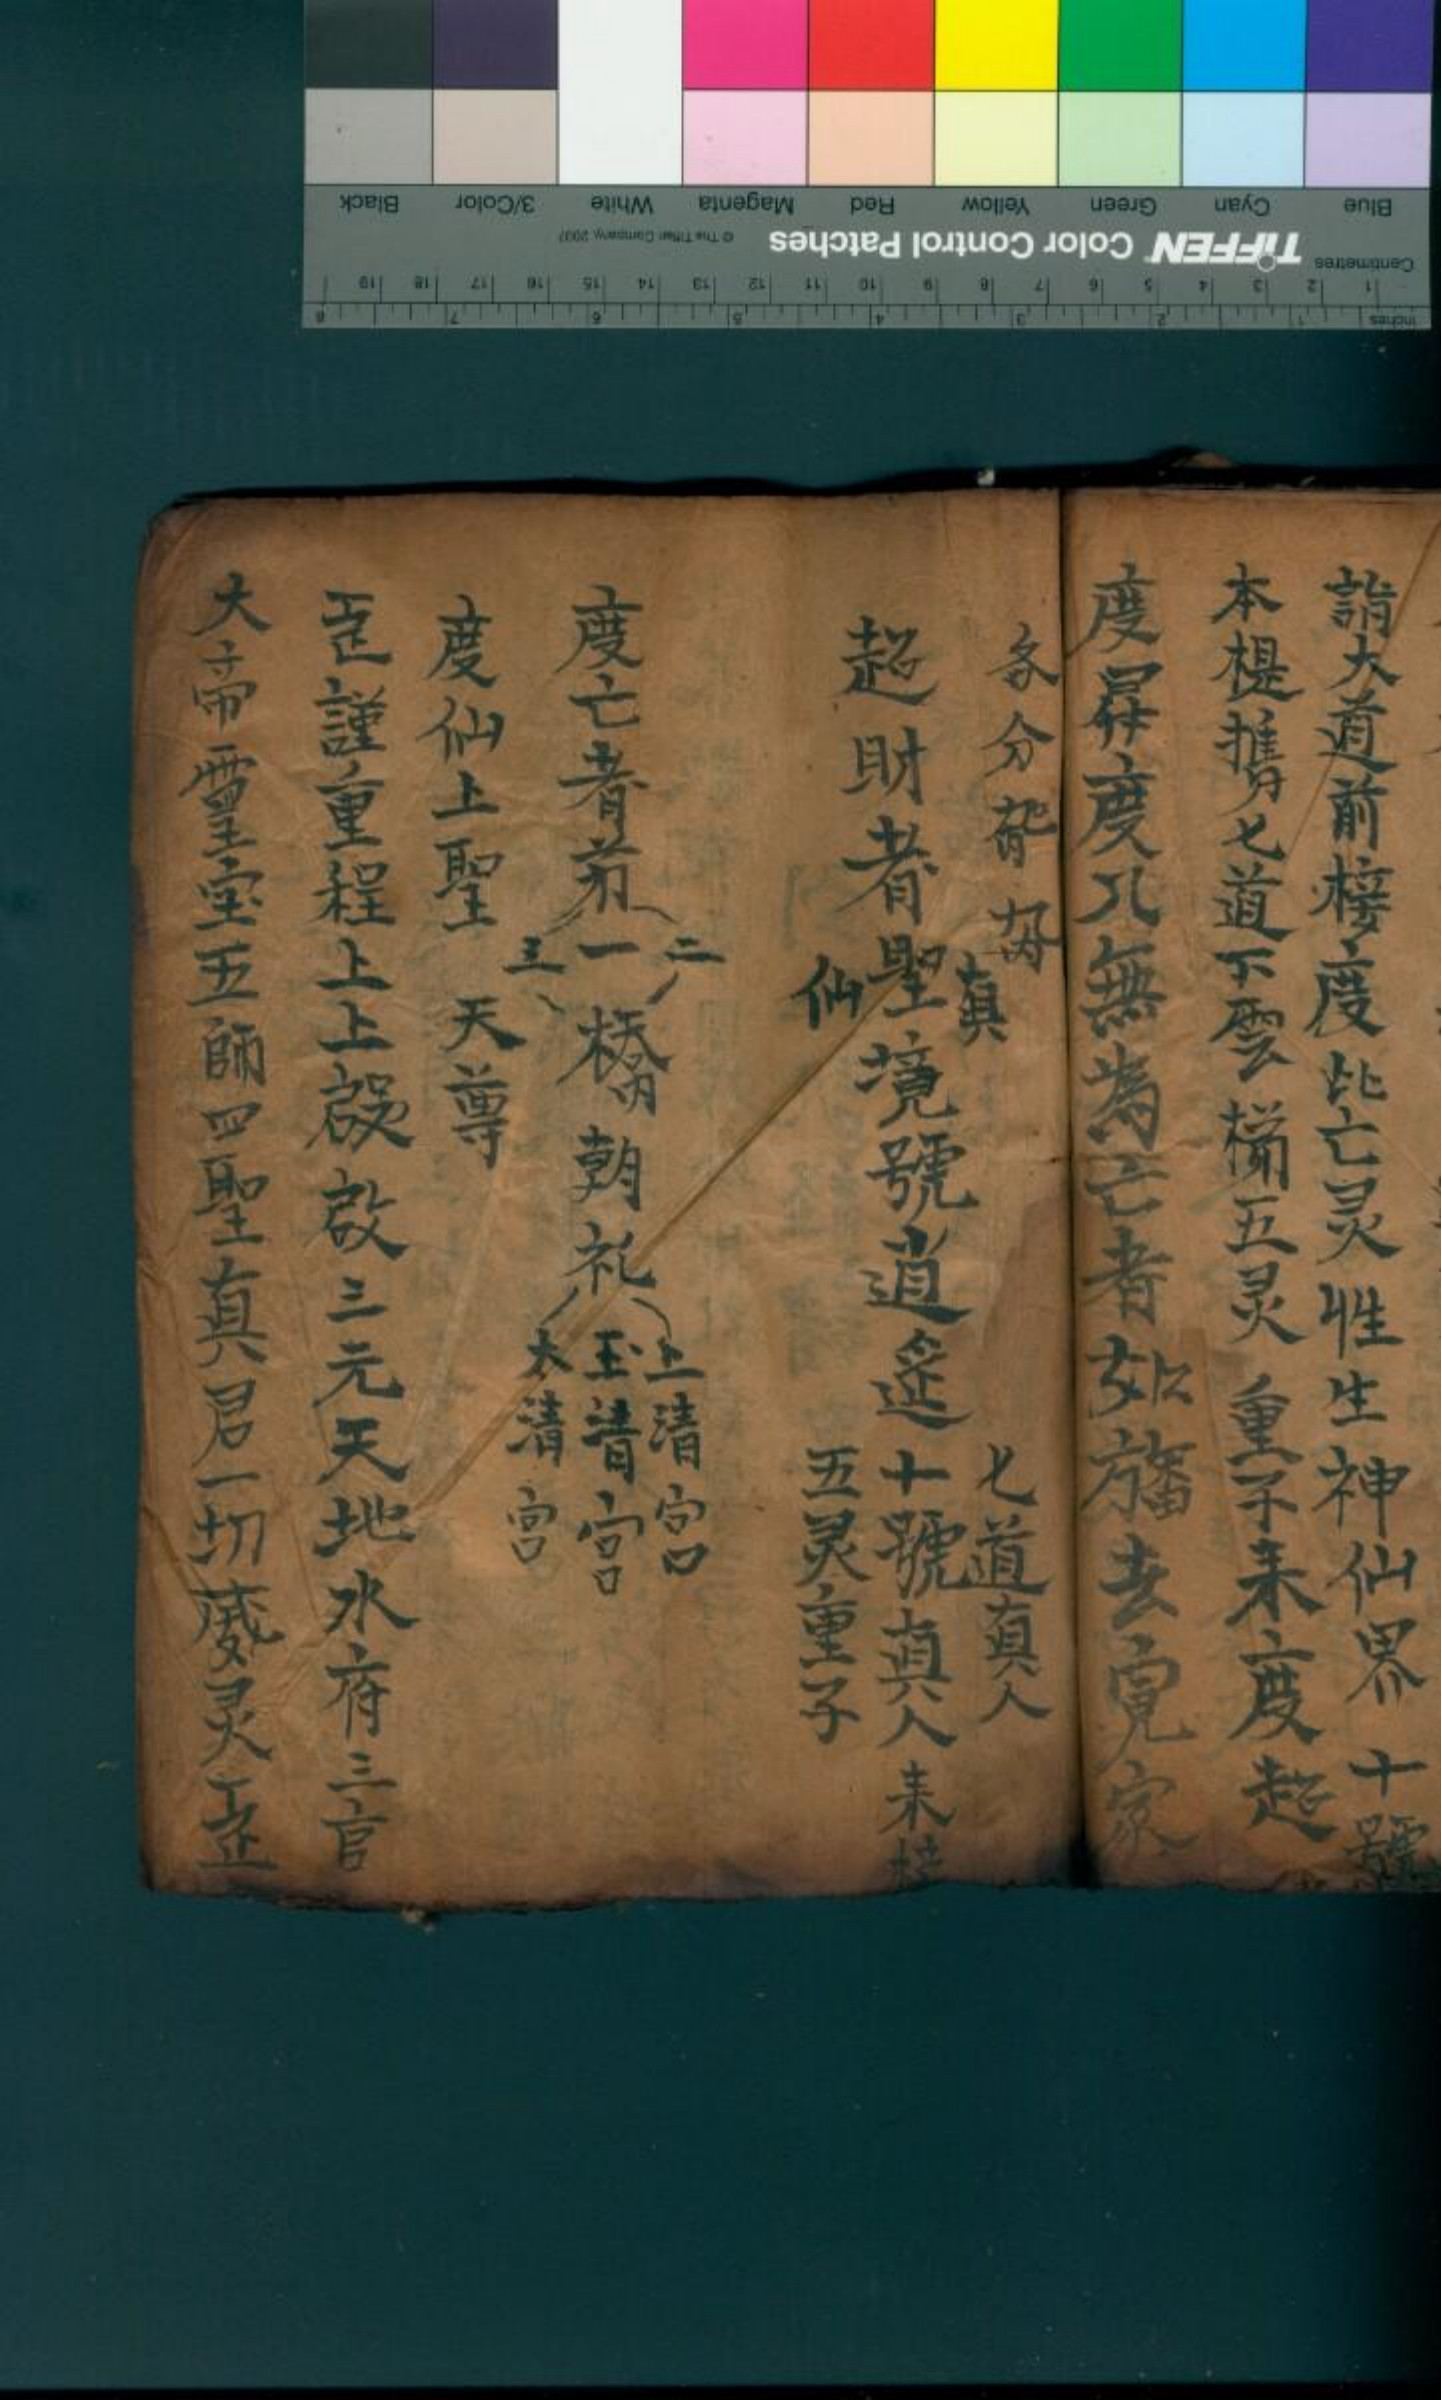 詣大道前接度此亡灵性生神仙界 十號
本提携七道不雲橋五灵重子来度超
度昇度几無為亡者如旛去 家
各分
超財者聖境號逍遥十號真人来接
真
仙
七道真人
五灵童子
度亡者前一橋朝礼玉清宮
二
三
上清宮
太清宮
度仙上聖 天尊
臣謹重程上上啟啟三元天地水府三官
大帝靈宝五師四聖真君一切威灵臣
Blue Cyan Green Yellow Red Magenta White 3/Color Black
TIFFEN Color Control Patches © The Tiffen Company, 2007
Centimetres 1 2 3 4 5 6 7 8 9 10 11 12 13 14 15 16 17 18 19
Inches 1 2 3 4 5 6 7 8